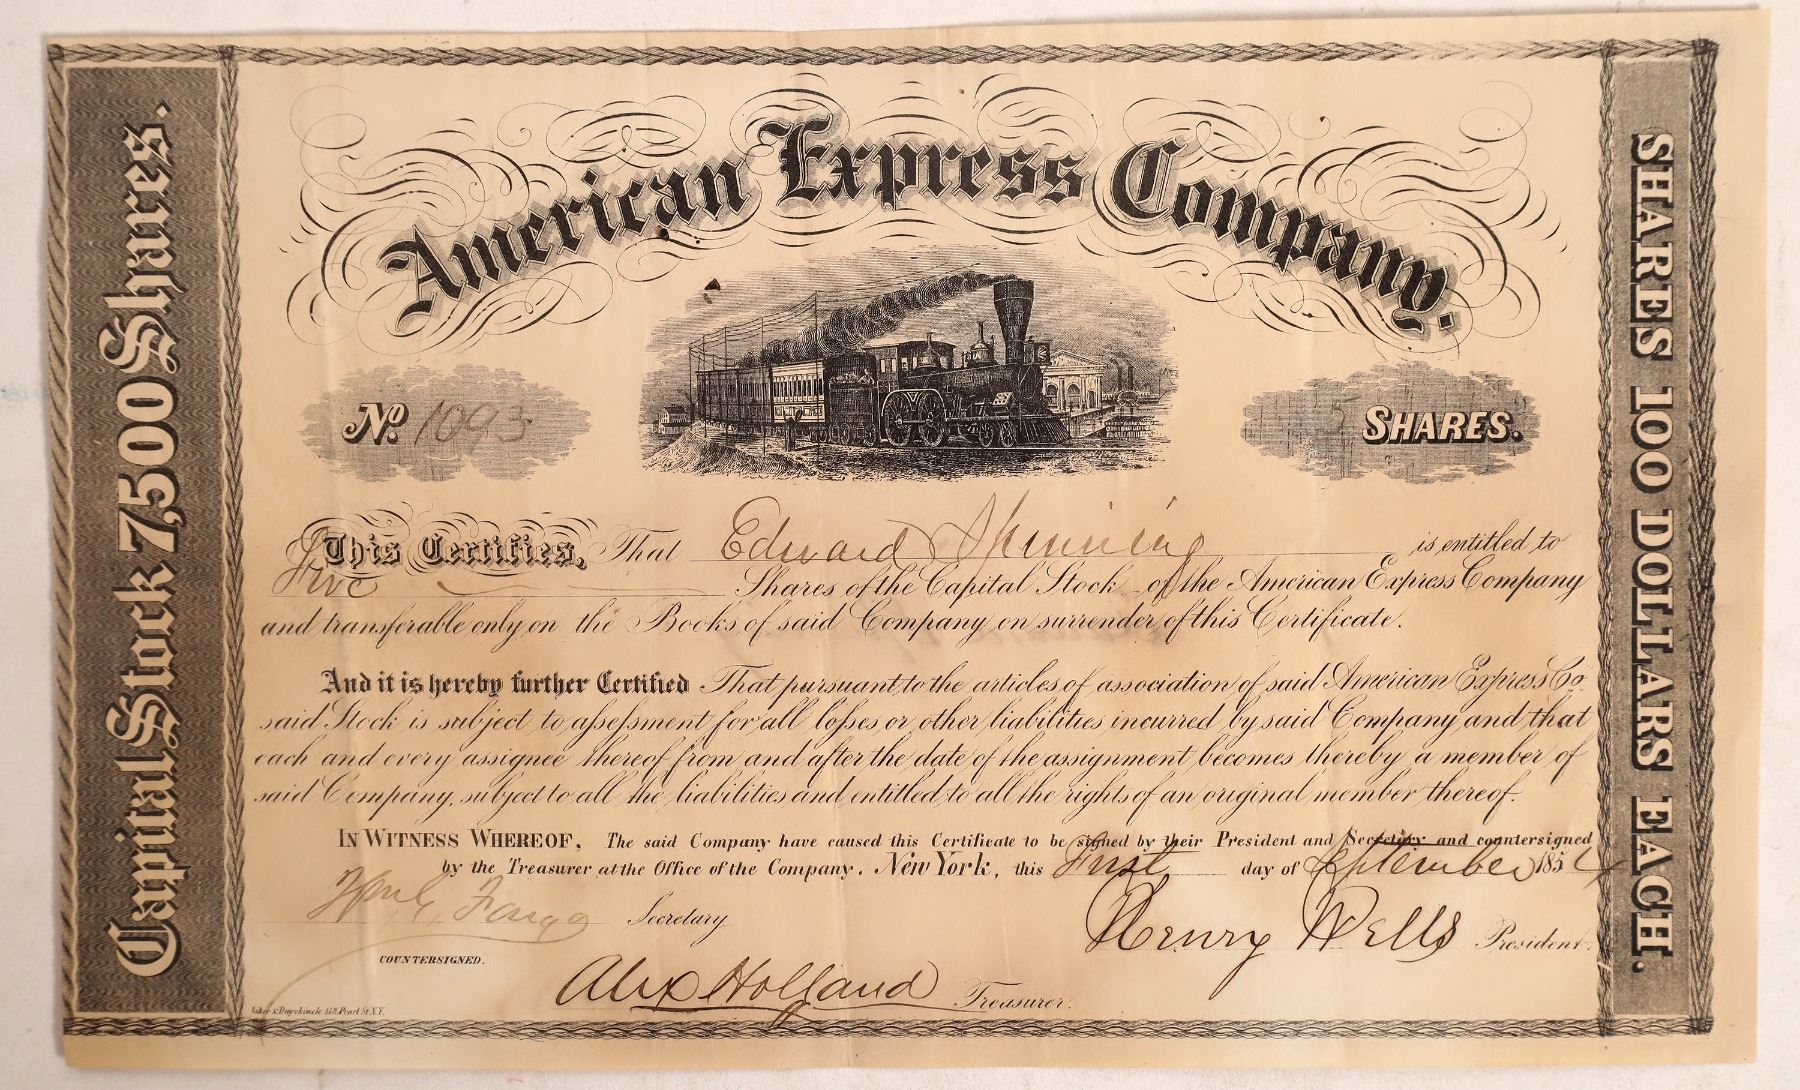 American Express Company.
Capital Stock 7,500 Shares.
SHARES 100 DOLLARS EACH.
No. 1093
5 SHARES.
This Certifies, That Edward Spinning is entitled to
Five Shares of the Capital Stock of the American Express Company
and transferable only on the Books of said Company on surrender of this Certificate.
And it is hereby further Certified That pursuant to the articles of association of said American Express Co.
said Stock is subject to assessment for all losses or other liabilities incurred by said Company and that
each and every assignee thereof from and after the date of the assignment becomes thereby a member of
said Company, subject to all the liabilities and entitled to all the rights of an original member thereof.
IN WITNESS WHEREOF, The said Company have caused this Certificate to be signed by their President and Secretary and countersigned
by the Treasurer at the Office of the Company. New York, this First day of September 1854
Wm G. Fargo Secretary
Henry Wells President.
COUNTERSIGNED.
Alex Holland Treasurer.
& Duyckinck 158 Pearl St. N.Y.